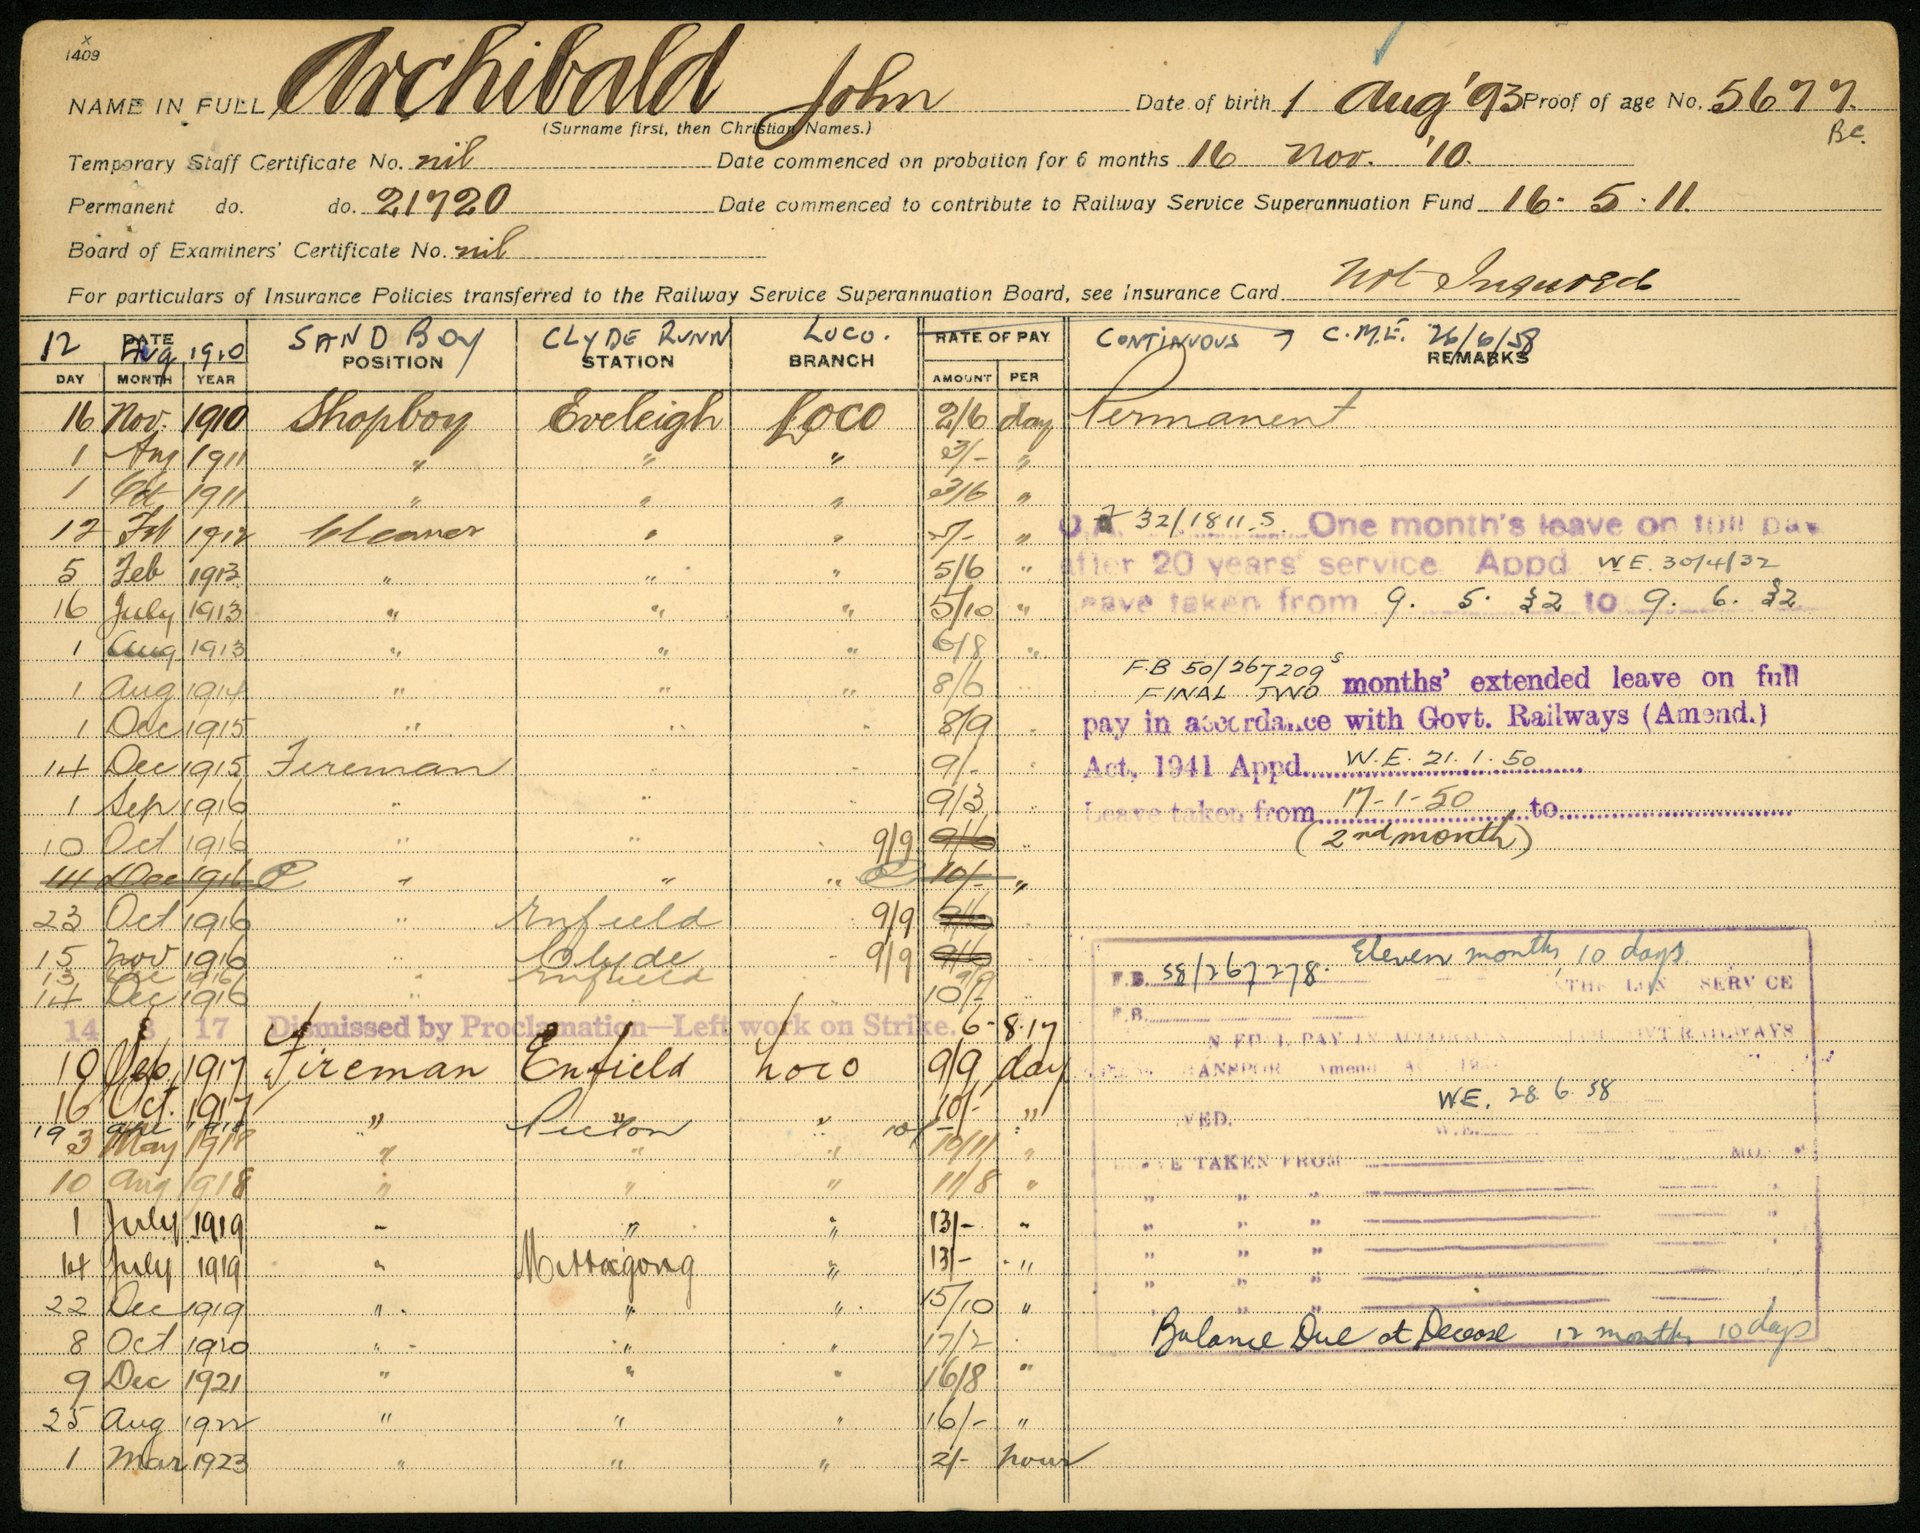 x
1409
NAME IN FULL Archibald John Date of birth 1 Aug '93 Proof of age No. 5677
(Surname first, then Christian Names.) B.C.
Temporary Staff Certificate No. nil Date commenced on probation for 6 months 16 Nov. '10
Permanent do. do. 21720 Date commenced to contribute to Railway Service Superannuation Fund 16. 5. 11.
Board of Examiners' Certificate No. nil
For particulars of Insurance Policies transferred to the Railway Service Superannuation Board, see Insurance Card. Not Insured
12 Aug 1910 SAND BOY CLYDE RUNN LOCO. CONTINUOUS → C.M.E. 26/6/58
DATE POSITION STATION BRANCH RATE OF PAY REMARKS
DAY MONTH YEAR AMOUNT PER
16 Nov. 1910 Shopboy Eveleigh Loco 2/6 day Permanent
1 Aug 1911 " " " 3/- "
1 Oct 1911 " " " 3/6 "
12 Feb 1912 Cleaner " " "
32/1811.S. One month's leave on full pay
5 Feb 1913 " " " 5/6 "
after 20 years' service Appd W.E. 30/4/32
16 July 1913 " " " 5/10 "
Leave taken from 9. 5. 32 to 9. 6. 32
1 Aug 1913 " " " 6/8 "
1 Aug 1914 " " " 8/6
F.B 50/267209 s
FINAL TWO months' extended leave on full
1 Dec 1915 " " " 8/9
pay in accordance with Govt. Railways (Amend.)
14 Dec 1915 Fireman " " 9/-
Act, 1941 Appd. W.E. 21.1.50
1 Sep 1916 " " " 9/3
Leave taken from 17-1-50 to
10 Oct 1916 " " " 9/9 9/6 "
(2nd month)
14 Dec 1916 " " " 10/- "
23 Oct 1916 " Enfield 9/9 9/6
15 Nov 1916 Clyde " 9/9 9/6
13 Dec 1916 " Enfield 9/9
14 Dec 1916 " " 10/-
14 8 17 Dismissed by Proclamation—Left work on Strike. 6-8-17
19 Sep 1917 Fireman Enfield Loco 9/9 day
16 Oct. 1917 " " " 10/- "
19 Picton "
3 May 1918 " " " 10/11 "
10 Aug 1918 " " " 11/8 "
1 July 1919 " " " 13/- "
14 July 1919 " Mittagong " 13/- "
22 Dec 1919 " " " 15/10 "
8 Oct 1920 " " " 17/2
9 Dec 1921 " " " 16/8 "
25 Aug 1922 " " " 16/- "
1 Mar 1923 " " " 2/- hour
Eleven months 10 days
F.B. 58/267278. SERVICE
F.B.
FULL PAY IN GOVT RAILWAYS
Amend
WE. 28.6.58
W.E.
LEAVE TAKEN FROM
" " "
" " "
" " "
" " "
" " "
Balance Due at Decease 12 months 10 days